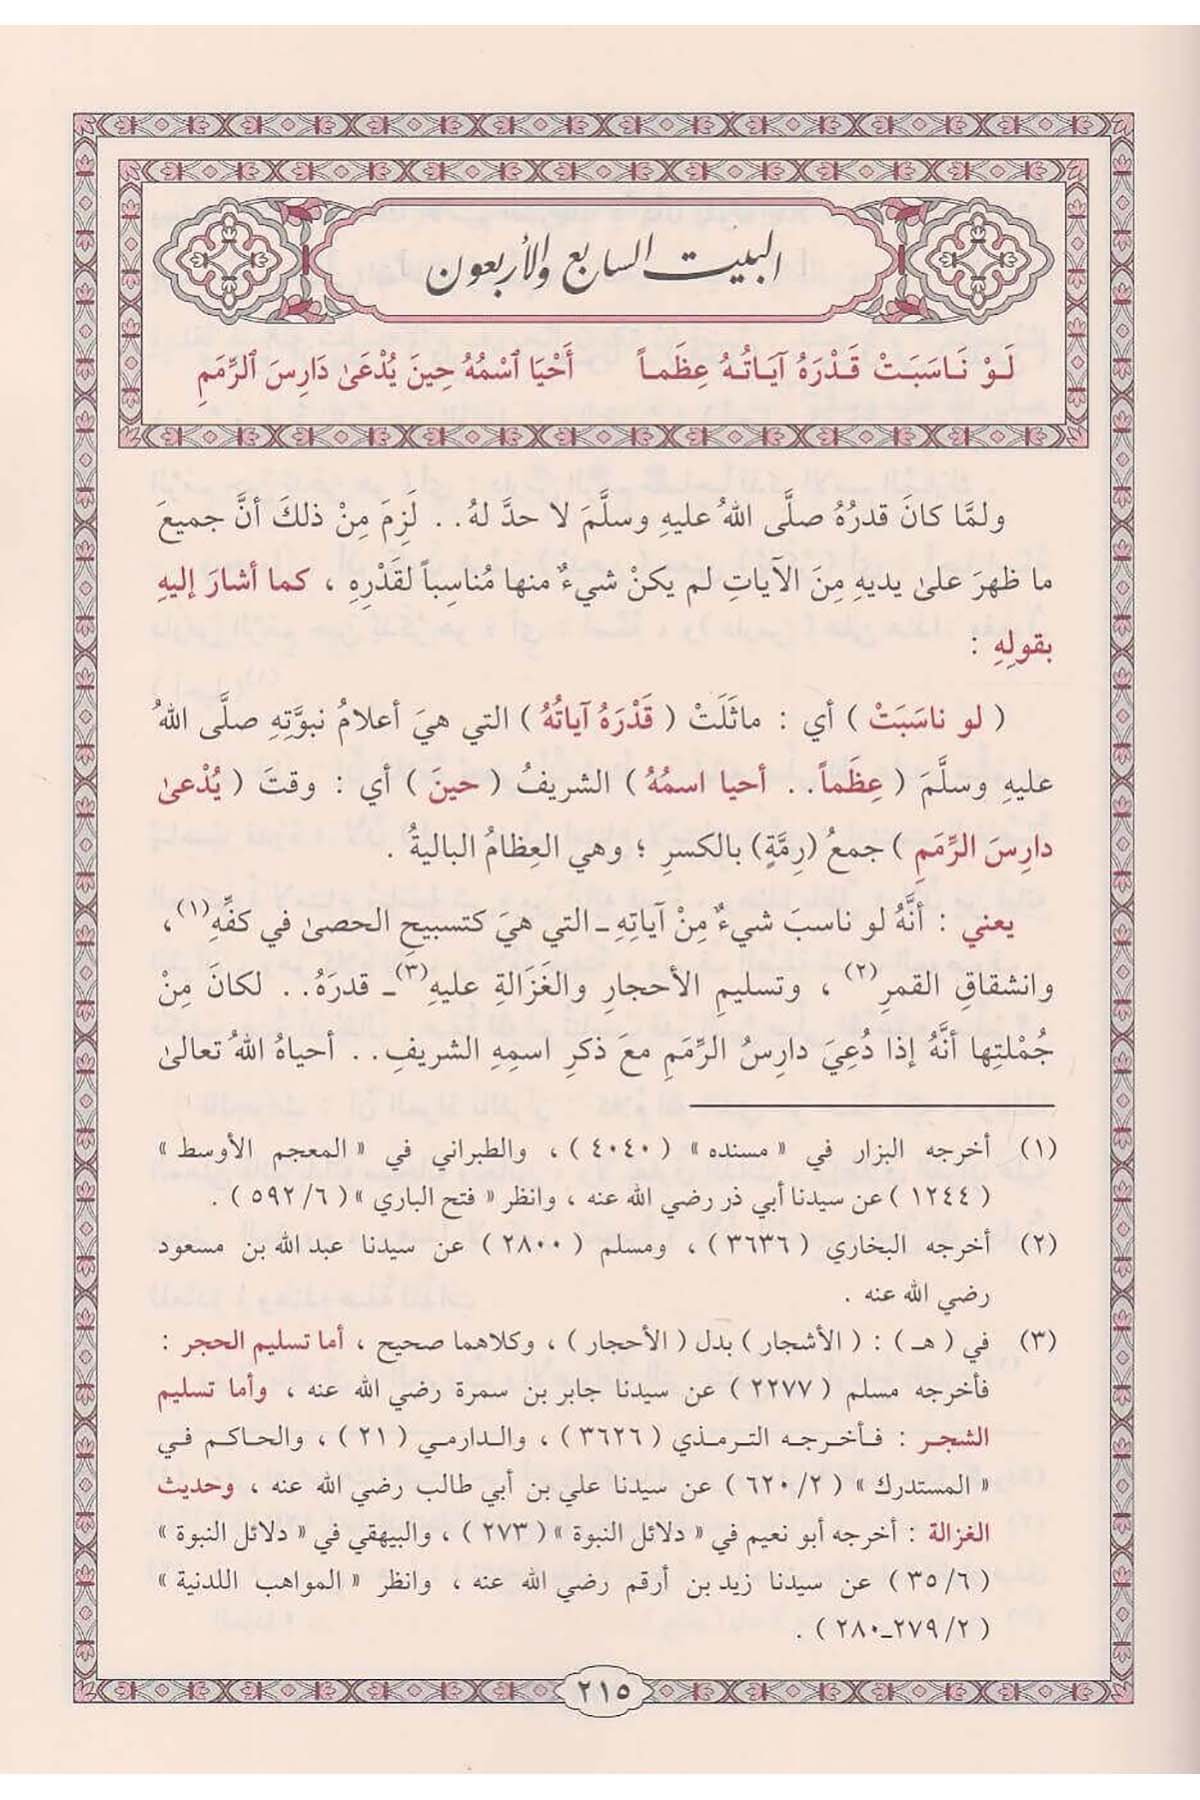 البيت السابع والأربعون
لَوْ نَاسَبَتْ قَدْرَهُ آيَاتُهُ عِظَماً أَحْيَا ٱسْمُهُ حِينَ يُدْعَىٰ دَارِسَ ٱلرِّمَمِ
ولمَّا كانَ قدرُهُ صلَّى اللهُ عليهِ وسلَّمَ لا حدَّ لهُ.. لَزِمَ مِنْ ذلكَ أنَّ جميعَ
ما ظهرَ علىٰ يديهِ مِنَ الآياتِ لم يكنْ شيءٌ منها مُناسِباً لقَدْرِهِ ، كما أشارَ إليهِ
بقولِهِ :
( لو ناسَبَتْ ) أي : ماثَلَتْ ( قَدْرَهُ آياتُهُ ) التي هيَ أعلامُ نبوَّتِهِ صلَّى اللهُ
عليهِ وسلَّمَ ( عِظَماً.. أحيا اسمُهُ ) الشريفُ ( حينَ ) أي : وقتَ ( يُدْعىٰ
دارِسَ الرِّمَمِ ) جمعُ (رِمَّةٍ) بالكسرِ ؛ وهي العِظامُ الباليةُ .
يعني : أنَّهُ لو ناسبَ شيءٌ مِنْ آياتِهِ ـ التي هيَ كتسبيحِ الحصىٰ في كفِّهِ(١) ،
وانشقاقِ القمرِ(٢) ، وتسليمِ الأحجارِ والغَزَالةِ عليهِ(٣) ـ قدرَهُ.. لكانَ مِنْ
جُمْلتِها أنَّهُ إذا دُعِيَ دارِسُ الرِّمَمِ معَ ذكرِ اسمِهِ الشريفِ.. أحياهُ اللهُ تعالىٰ
(١) أخرجه البزار في « مسنده » ( ٤٠٤٠ ) ، والطبراني في « المعجم الأوسط »
( ١٢٤٤ ) عن سيدنا أبي ذر رضي الله عنه ، وانظر « فتح الباري » ( ٥٩٢/٦ ) .
(٢) أخرجه البخاري ( ٣٦٣٦ ) ، ومسلم ( ٢٨٠٠ ) عن سيدنا عبد الله بن مسعود
رضي الله عنه .
(٣) في ( هـ ) : ( الأشجار ) بدل ( الأحجار ) ، وكلاهما صحيح ، أما تسليم الحجر :
فأخرجه مسلم ( ٢٢٧٧ ) عن سيدنا جابر بن سمرة رضي الله عنه ، وأما تسليم
الشجر : فأخرجه الترمذي ( ٣٦٢٦ ) ، والدارمي ( ٢١ ) ، والحاكم في
« المستدرك » ( ٦٢٠/٢ ) عن سيدنا علي بن أبي طالب رضي الله عنه ، وحديث
الغزالة : أخرجه أبو نعيم في « دلائل النبوة » ( ٢٧٣ ) ، والبيهقي في « دلائل النبوة »
( ٣٥/٦ ) عن سيدنا زيد بن أرقم رضي الله عنه ، وانظر « المواهب اللدنية »
( ٢/ ٢٧٩ـ٢٨٠ ) .
٢١٥